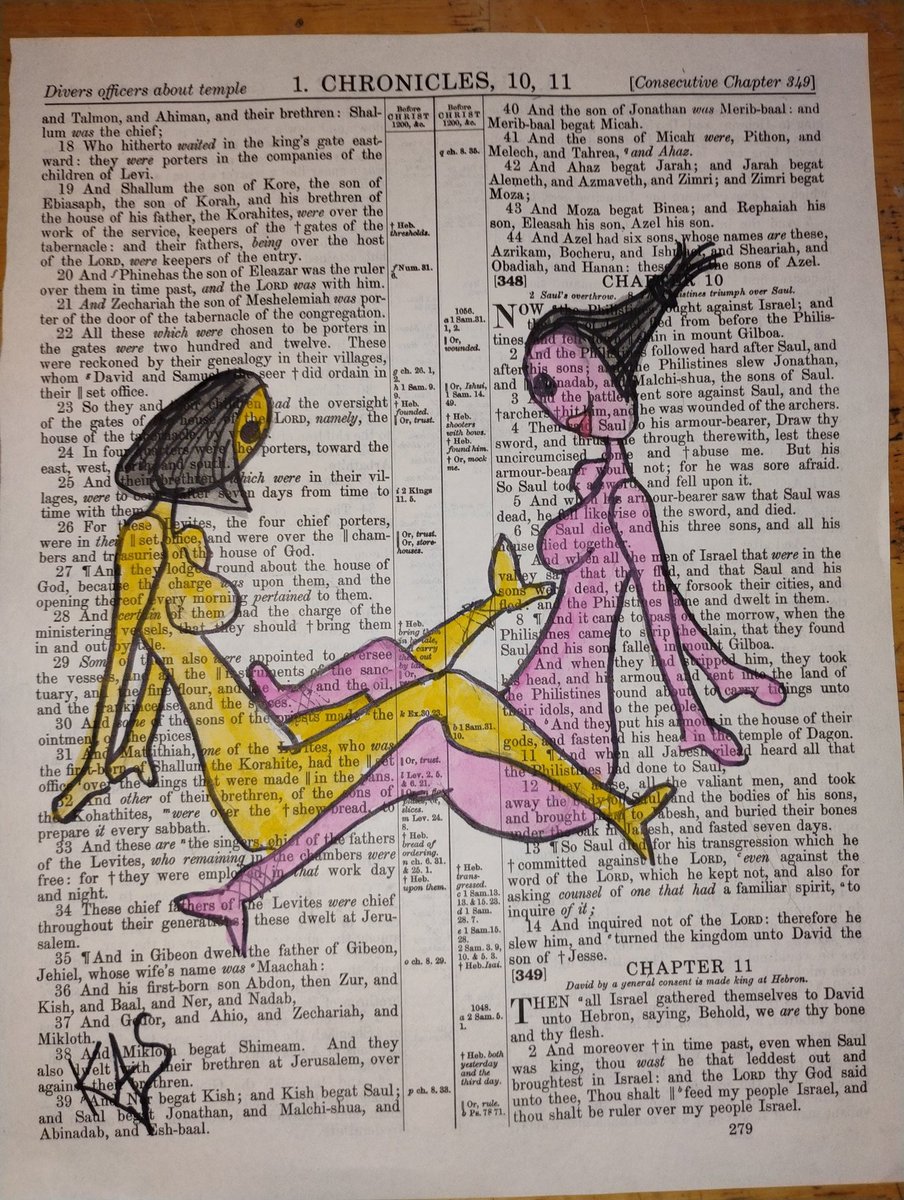 Divers officers about temple
1. CHRONICLES, 10, 11
[Consecutive Chapter 349]
and Talmon, and Ahiman, and their brethren: Shal-
lum was the chief;
18 Who hitherto waited in the king's gate east-
ward: they were porters in the companies of the
children of Levi.
19 And Shallum the son of Kore, the son of
Ebiasaph, the son of Korah, and his brethren of
the house of his father, the Korahites, were over the
work of the service, keepers of the †gates of the
tabernacle: and their fathers, being over the host
of the LORD, were keepers of the entry.
20 And ᶠPhinehas the son of Eleazar was the ruler
over them in time past, and the LORD was with him.
21 And Zechariah the son of Meshelemiah was por-
ter of the door of the tabernacle of the congregation.
22 All these which were chosen to be porters in
the gates were two hundred and twelve. These
were reckoned by their genealogy in their villages,
whom David and Samuel the seer †did ordain in
their ‖set office.
23 So they and their children had the oversight
of the gates of the house of the LORD, namely, the
house of the tabernacle,
24 In four quarters were the porters, toward the
east, west, north and south.
25 And their brethren, which were in their vil-
lages, were to come after seven days from time to
time with them.
26 For these Levites, the four chief porters,
were in their ‖set office, and were over the ‖cham-
bers and treasuries of the house of God.
27 ¶And they lodged round about the house of
God, because the charge was upon them, and the
opening thereof every morning pertained to them.
28 And certain of them had the charge of the
ministering vessels, that they should †bring them
in and out by tale.
29 Some of them also were appointed to oversee
the vessels, and all the ‖instruments of the sanc-
tuary, and the fine flour, and the wine, and the oil,
and the frankincense, and the spices.
30 And some of the sons of the priests made the
ointment of the spices.
31 And Mattithiah, one of the Levites, who was
the first-born of Shallum the Korahite, had the ‖set
office over the things that were made ‖in the pans.
32 And other of their brethren, of the sons of
the Kohathites, ᵐwere over the †shew-bread, to
prepare it every sabbath.
33 And these are ⁿthe singers, chief of the fathers
of the Levites, who remaining in the chambers were
free: for †they were employed in that work day
and night.
34 These chief fathers of the Levites were chief
throughout their generations; these dwelt at Jeru-
salem.
35 ¶And in Gibeon dwelt the father of Gibeon,
Jehiel, whose wife's name was ᵒMaachah:
36 And his first-born son Abdon, then Zur, and
Kish, and Baal, and Ner, and Nadab,
37 And Gedor, and Ahio, and Zechariah, and
Mikloth.
38 And Mikloth begat Shimeam. And they
also dwelt with their brethren at Jerusalem, over
against their brethren.
39 And Ner begat Kish; and Kish begat Saul;
and Saul begat Jonathan, and Malchi-shua, and
Abinadab, and Esh-baal.
KAS
Before
CHRIST
1200, &c.
† Heb.
thresholds.
f Num. 31.
6.
g ch. 26. 1,
2.
h 1 Sam. 9.
9.
† Heb.
founded.
‖ Or, trust.
i 2 Kings
11. 5.
‖ Or, trust.
‖ Or, store-
houses.
† Heb.
bring them
carry
out
k Ex. 30. 23.
‖ Or, trust.
l Lev. 2. 5,
& 6. 21.
slices.
m Lev. 24.
8.
† Heb.
bread of
ordering.
n ch. 6. 31,
& 25. 1.
† Heb.
upon them.
o ch. 8. 29.
p ch. 8. 33.
Before
CHRIST
1200, &c.
q ch. 8. 35.
1056.
a 1 Sam. 31.
1, 2.
‖ Or,
wounded.
‖ Or, Ishui,
1 Sam. 14.
49.
† Heb.
shooters
with bows.
† Heb.
found him.
‖ Or, mock
me.
b 1 Sam. 31.
10.
† Heb.
trans-
gressed.
c 1 Sam.
13. & 15. 23.
d 1 Sam.
28. 7.
e 1 Sam. 15.
28.
2 Sam. 3. 9,
10. & 5. 3.
† Heb. Isai.
1048.
a 2 Sam. 5.
1.
† Heb. both
yesterday
and the
third day.
‖ Or, rule.
b Ps. 78 71.
40 And the son of Jonathan was Merib-baal: and
Merib-baal begat Micah.
41 And the sons of Micah were, Pithon, and
Melech, and Tahrea, ᵠand Ahaz.
42 And Ahaz begat Jarah; and Jarah begat
Alemeth, and Azmaveth, and Zimri; and Zimri begat
Moza;
43 And Moza begat Binea; and Rephaiah his
son, Eleasah his son, Azel his son.
44 And Azel had six sons, whose names are these,
Azrikam, Bocheru, and Ishmael, and Sheariah, and
Obadiah, and Hanan: these the sons of Azel.
[348] CHAPTER 10
2 Saul's overthrow. 8 Philistines triumph over Saul.
NOW the Philistines fought against Israel; and
fled from before the Philis-
tines, and fell in mount Gilboa.
2 And the Philistines followed hard after Saul, and
after his sons; and the Philistines slew Jonathan,
and Abinadab, and Malchi-shua, the sons of Saul.
3 the battle went sore against Saul, and the
†archers †hit him, and he was wounded of the archers.
4 Then Saul to his armour-bearer, Draw thy
sword, and thrust me through therewith, lest these
uncircumcised and †abuse me. But his
armour-bearer would not; for he was sore afraid.
So Saul took a sword, and fell upon it.
5 And when his armour-bearer saw that Saul was
dead, he fell likewise on the sword, and died.
6 So Saul died, and his three sons, and all his
house died together.
7 And when all the men of Israel that were in the
valley saw that they fled, and that Saul and his
sons were dead, then they forsook their cities, and
fled: and the Philistines came and dwelt in them.
8 ¶ And it came to pass on the morrow, when the
Philistines came to strip the slain, that they found
Saul and his sons fallen in mount Gilboa.
9 And when they had stripped him, they took
his head, and his armour, and sent into the land of
the Philistines round about, to carry tidings unto
their idols, and to the people.
10 And they put his armour in the house of their
gods, and fastened his head in the temple of Dagon.
11 ¶ And when all Jabesh-gilead heard all that
the Philistines had done to Saul,
12 They arose, all the valiant men, and took
away the body of Saul, and the bodies of his sons,
and brought them to Jabesh, and buried their bones
under the oak in Jabesh, and fasted seven days.
13 ¶So Saul died for his transgression which he
†committed against the LORD, ᶜeven against the
word of the LORD, which he kept not, and also for
asking counsel of one that had a familiar spirit, ᵈto
inquire of it;
14 And inquired not of the LORD: therefore he
slew him, and ᵉturned the kingdom unto David the
son of †Jesse.
[349] CHAPTER 11
David by a general consent is made king at Hebron.
THEN ᵃall Israel gathered themselves to David
unto Hebron, saying, Behold, we are thy bone
and thy flesh.
2 And moreover †in time past, even when Saul
was king, thou wast he that leddest out and
broughtest in Israel: and the LORD thy God said
unto thee, Thou shalt ‖ᵇfeed my people Israel, and
thou shalt be ruler over my people Israel.
279